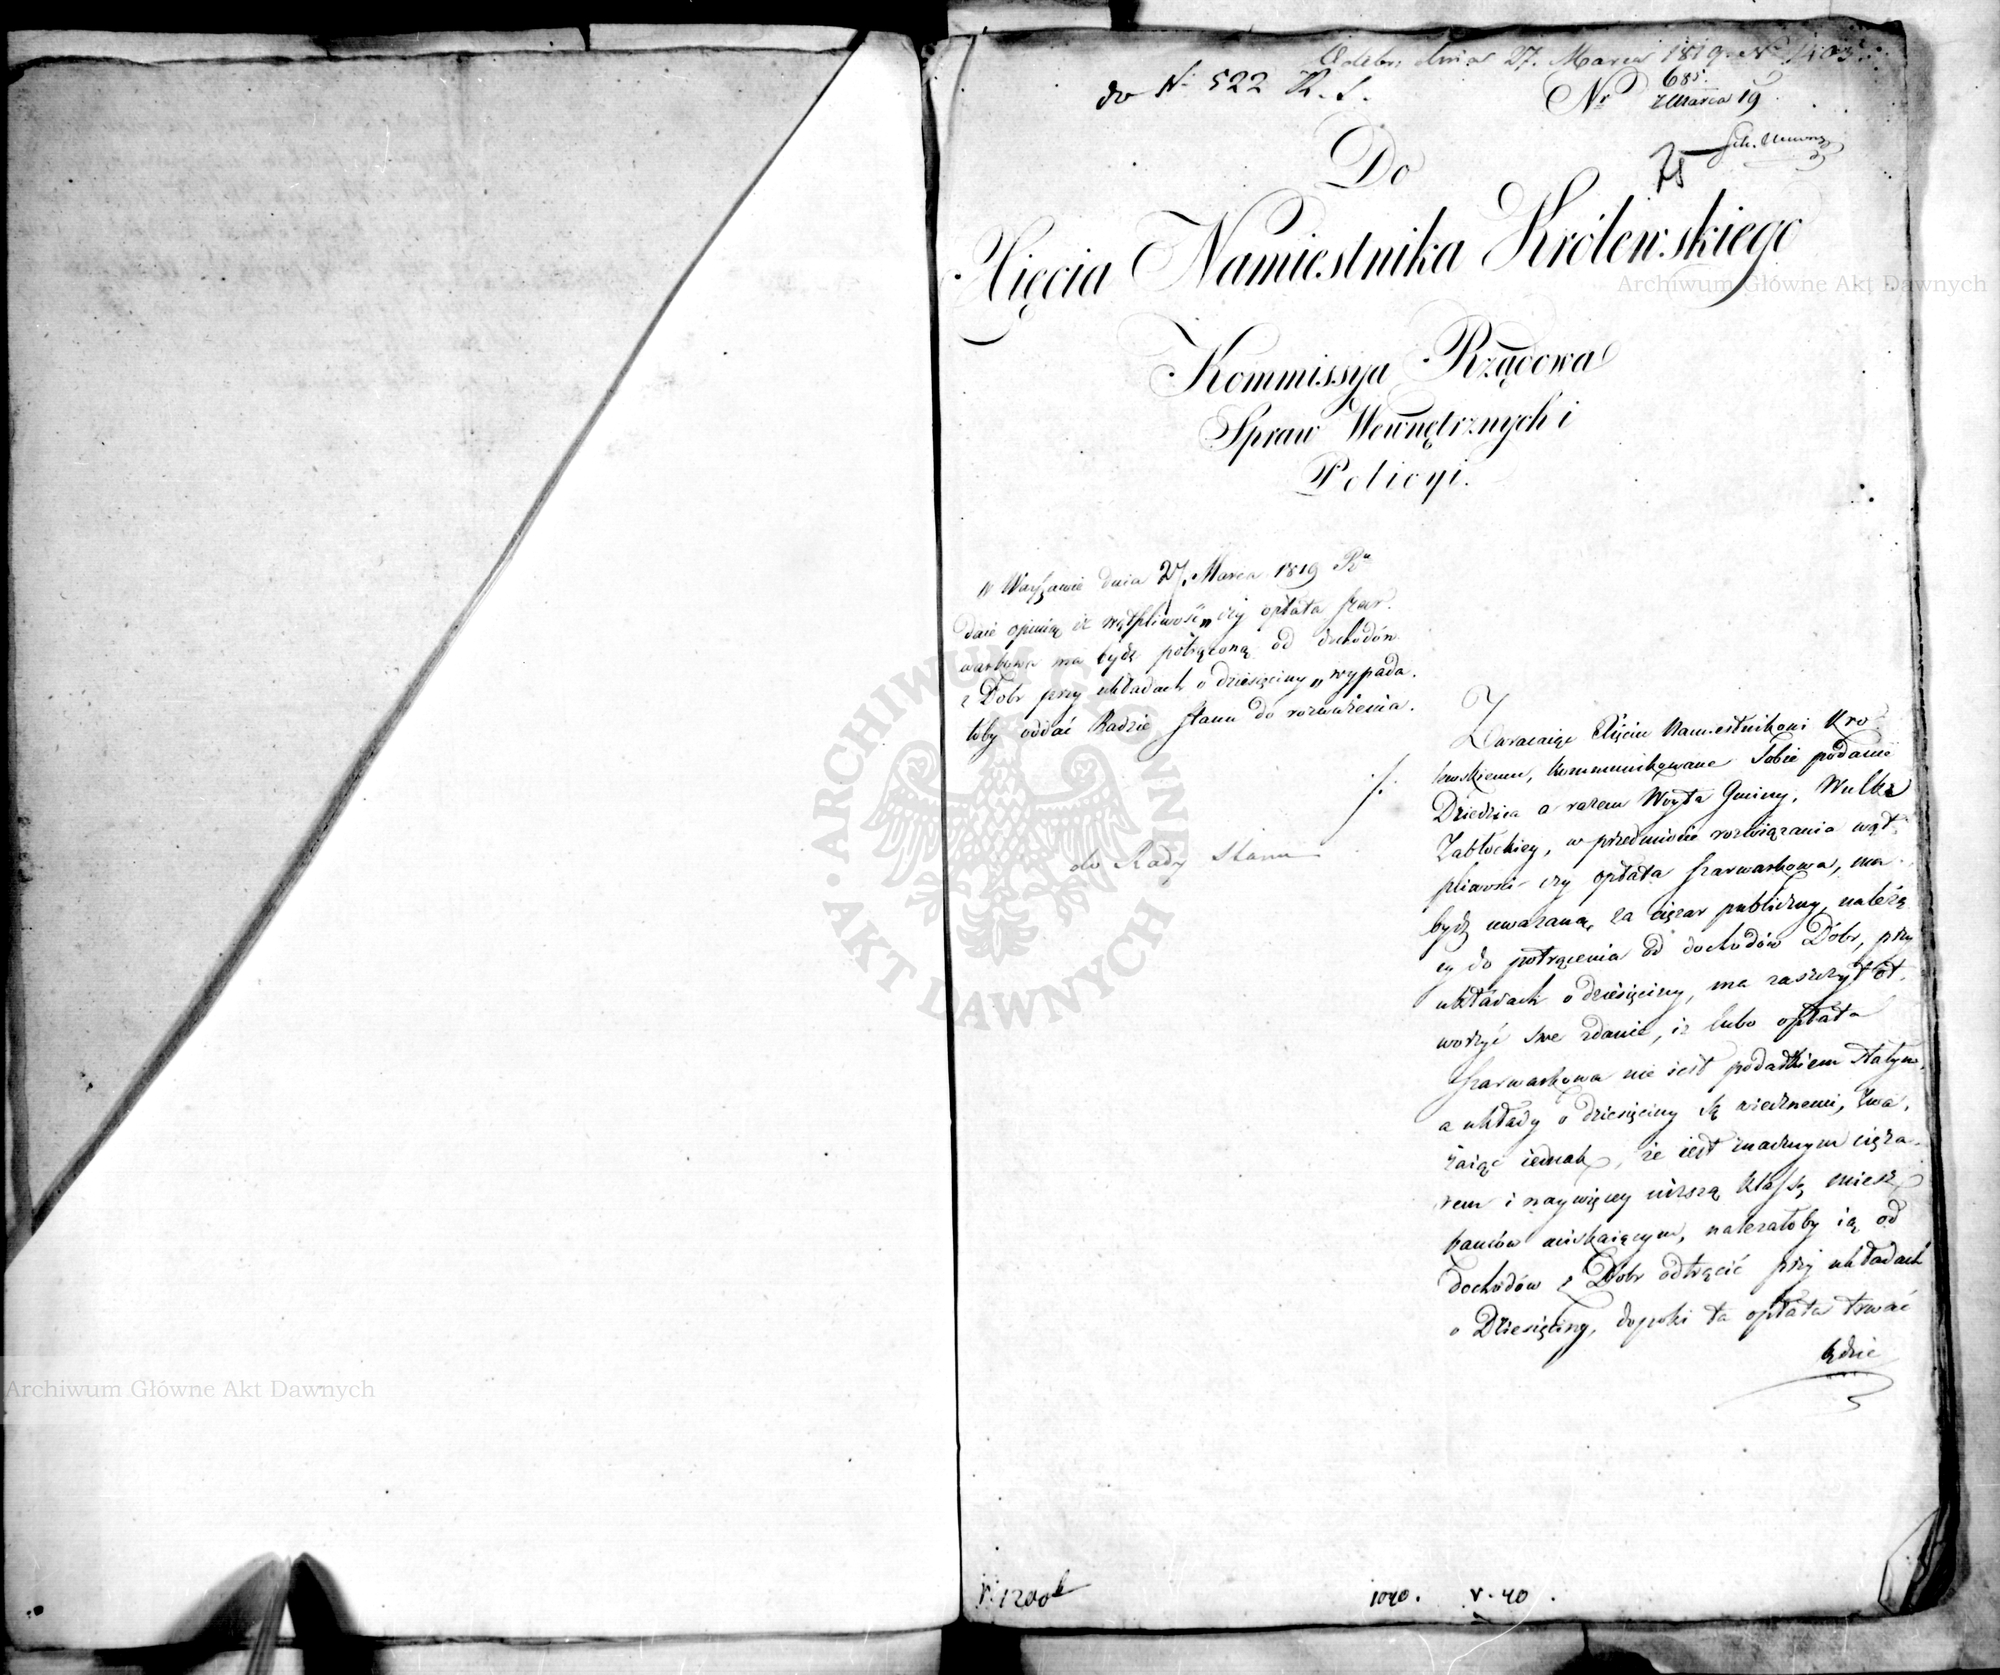 Odebr. dnia 27. Marca 1819. Nr 1403
do N. 522 R. S.
Nr 685
z Marca 19
75
Do
Xięcia Namiestnika Królewskiego
Kommissya Rządowa
Spraw Wewnętrznych i
Policyi.
w Warszawie dnia 27. Marca 1819 Rn
daie opinią iż wątpliwość „czy opłata szar-
warkowa ma bydź potrąconą od dochodów
z Dobr przy układach o dziesięciny„ wypada-
łoby oddać Radzie Stanu do rozważenia.
do Rady Stanu
Zwracaiąc Xięciu Namiestnikowi Kró-
lewskiemu, kommunikowane Sobie podanie
Dziedzica a razem Woyta Gminy, Wulka
Zabłockiey, w przedmiocie rozwiązania wąt-
pliwości czy opłata szarwarkowa, ma
bydź uważaną za ciężar publiczny, należą-
cy do potrącenia od dochodów Dobr, przy
układach o dziesięciny, ma zaszczyt ot-
worzyć swe zdanie, iż lubo opłata
szarwarkowa nie iest podatkiem stałym,
a układy o dziesięciny są wiecznemi, zwa-
żaiąc iednak, że iest znacznym cięża-
rem i naywięcey niższą klassę miesz-
kańców uciskaiącym, należałoby ią od
dochodów z Dobr odtrącić przy układach
o Dziesięciny, dopoki ta opłata trwać
będzie
1040. v. 40.
Archiwum Główne Akt Dawnych
Archiwum Główne Akt Dawnych
ARCHIWUM GŁÓWNE AKT DAWNYCH